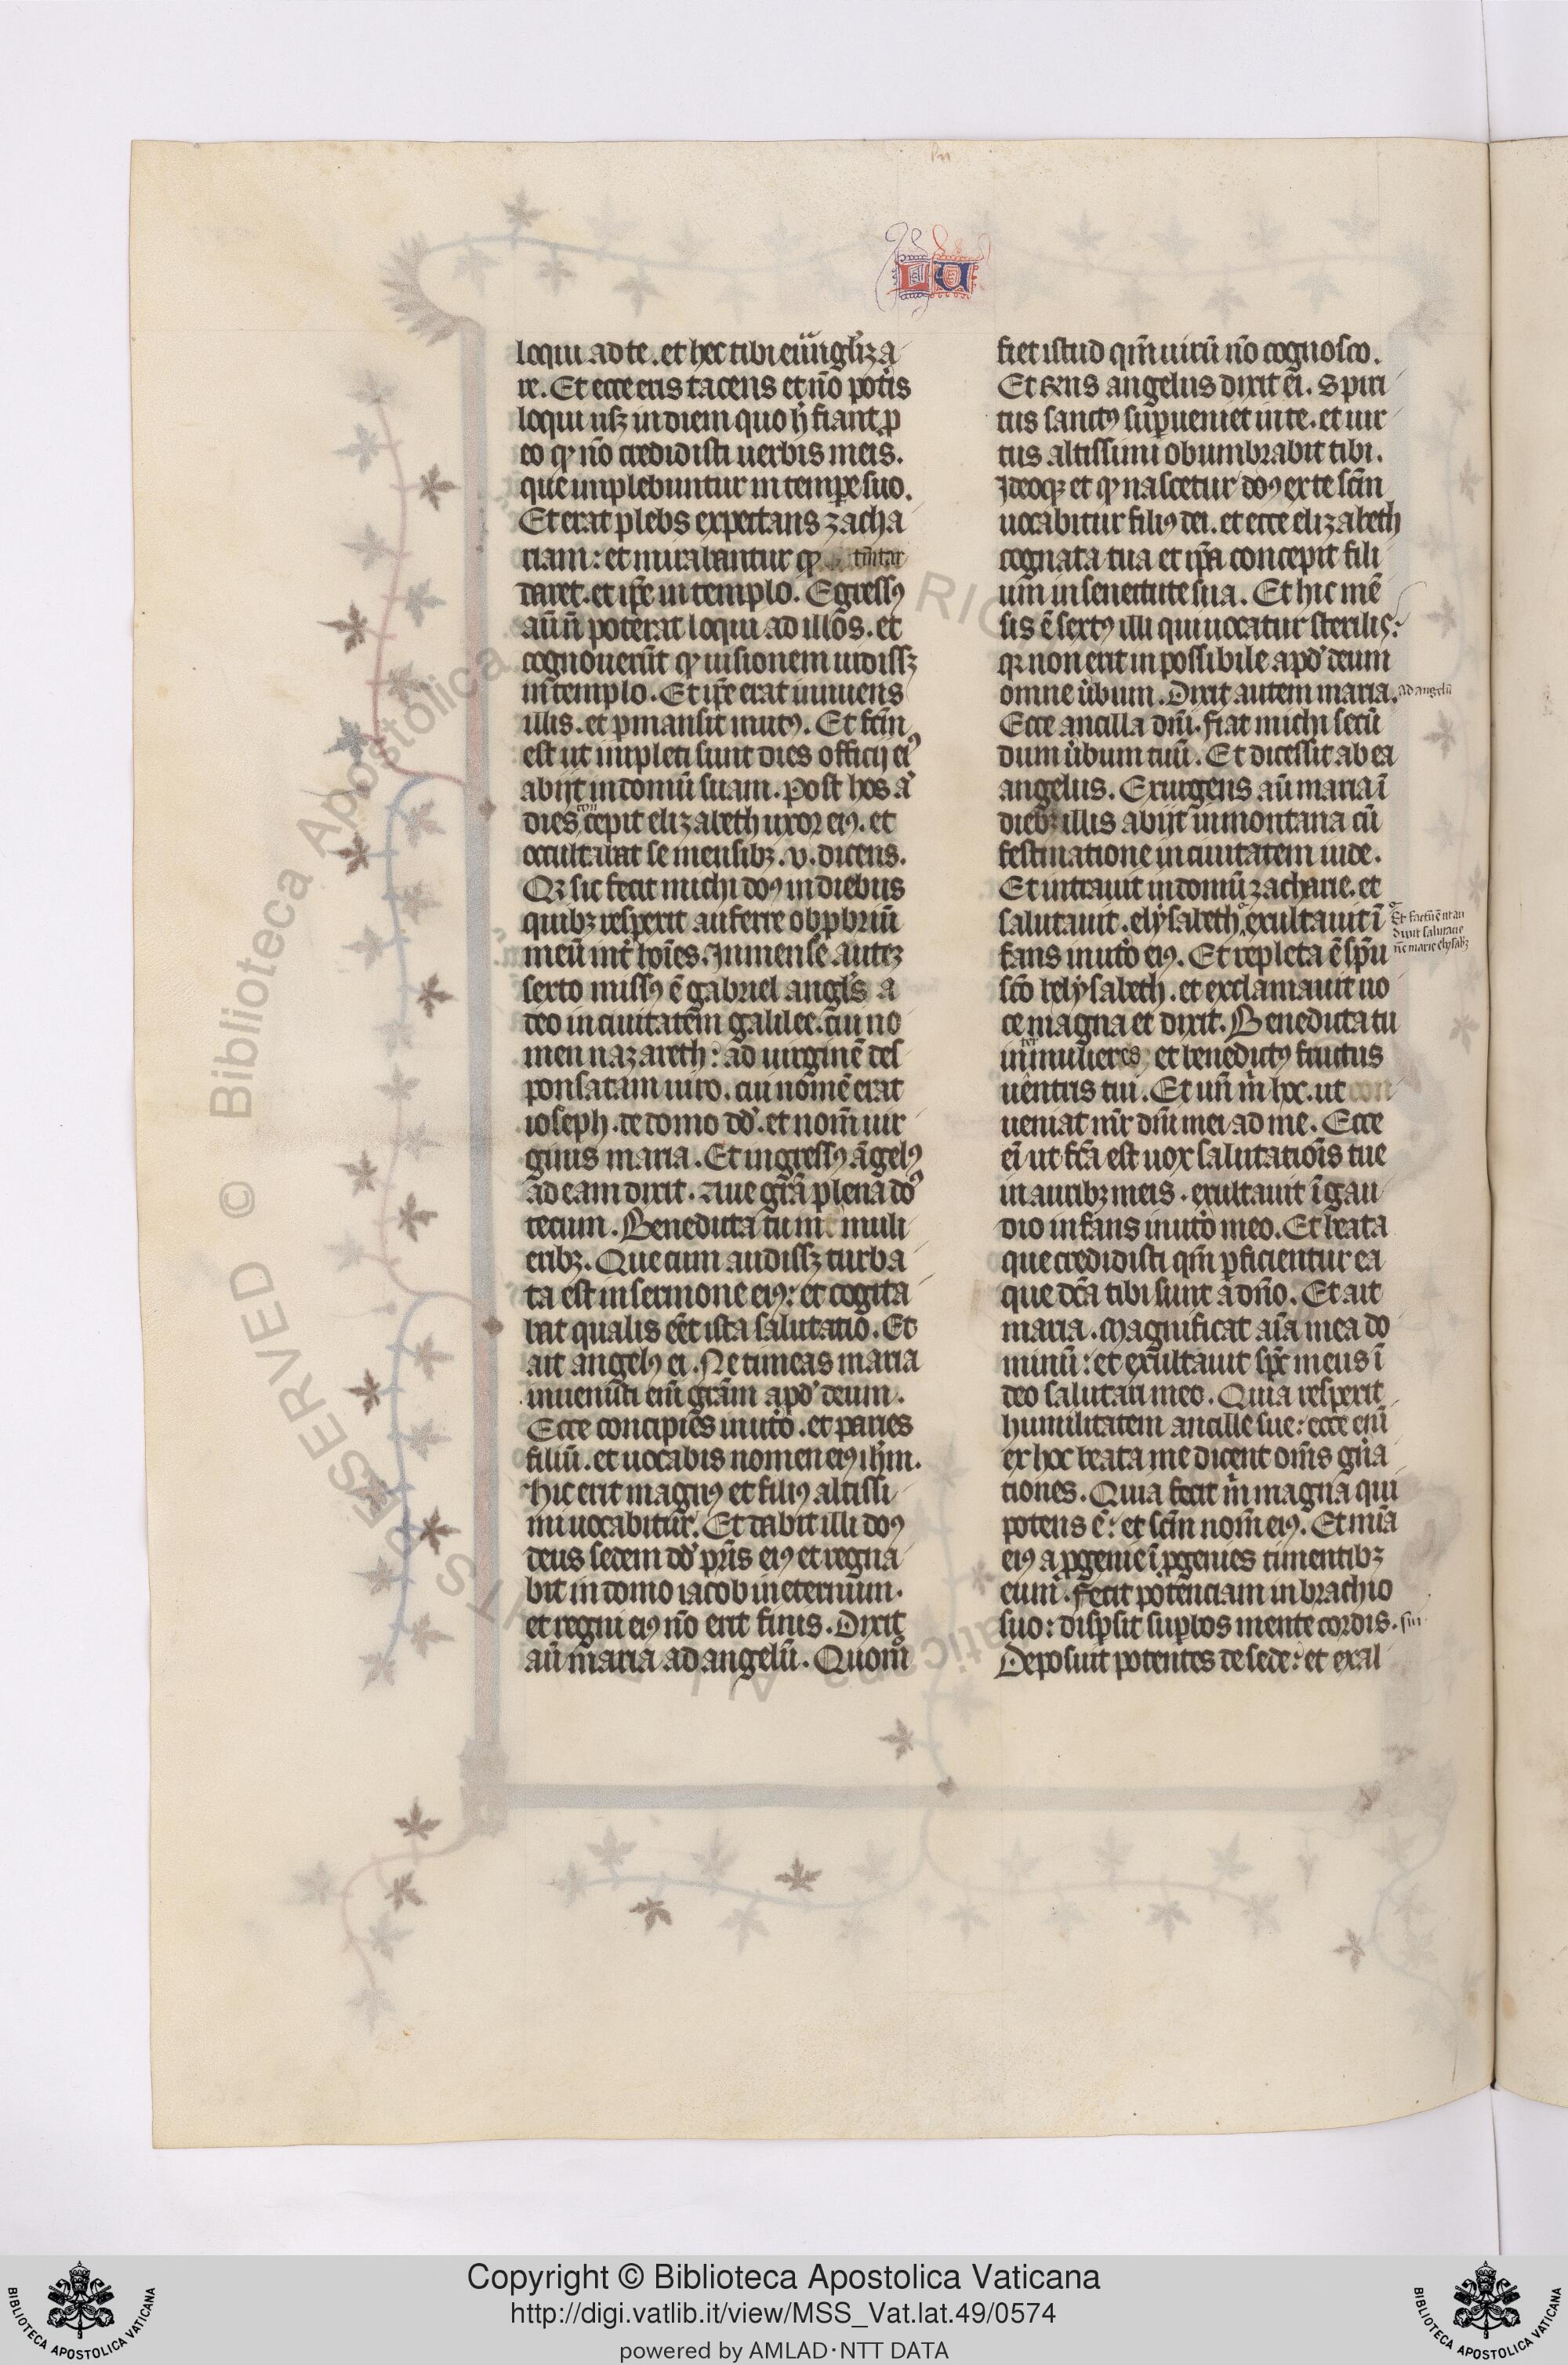 LU
loqui ad te. et hec tibi eu̅ug̅liza
re. Et ecce eris tacens et no̅ pot̾is
loqui usqꝫ in diem quo h̾ fiant. ꝓ
eo qꝫ no̅ credidisti uerbis meis.
que implebuntur in tempe̅ suo.
Et erat plebs expectans zacha
riam: et mirabantur qꝫ
daret. et ip̅e in templo. Egressꝰ
au̅ n̅ poterat loqui ad illos. et
cognouerūt qꝫ uisionem uidissꝫ
in templo. Et ip̅e erat innuens
illis. et ꝑmansit mutꝰ. Et fc̅m
est ut impleti sunt dies officij eiꝰ
abijt in domū suam. Post hos a̅
dies con cepit elizabeth uxor eiꝰ. et
occultabat se mensibꝫ .v. dicens.
Qꝛ sic fecit michi dn̅s in diebus
quibꝫ respexit auferre obꝓbriū
meū int̾ ho̅ies. In mense autēꝫ
sexto missꝰ ē gabriel angl̅s a
deo in ciuitatem galilee. cui no
men nazareth: ad uirginē des
ponsatam uiro. cui nomē erat
ioseph. de domo dd̾. et nom̅ uir
ginis maria. Et ingressꝰ āgelꝰ
ad eam dixit. Aue gr̅a plena do̅ꝰ
tecum. Benedicta tu in muli
eribꝫ. Que cum audissꝫ turba
ta est in sermone eiꝰ: et cogita
bat qualis eēt ista salutatio. Et
ait angelꝰ ei. Ne timeas maria
inuenisti eni̅ gr̅am apd̾ deum.
Ecce concipies in ut̾o. et paries
filiū. et uocabis nomen eiꝰ ih̅m.
hic erit magnꝰ et filiꝰ altissi
mi uocabitur. Et dabit illi dn̅s
deus sedem dd̾ pr̅is eiꝰ et regna
bit in domo iacob in eternum.
et regni eiꝰ no̅ erit finis. Dixit
au̅ maria ad angelū. Quom̅o
fiet istud qm̅ uirū no̅ cognosco.
Et rn̅s angelus dixit ei. Spiri
tus sanctꝰ suꝑueniet in te. et uir
tus altissimi obumbrabit tibi.
Ideoqꝫ et qꝫ nascetur ex te sc̅m
uocabitur filiꝰ dei. et ecce elizabeth
cognata tua et ip̅a concepit fili
um in senectute sua. Et hic mē
sis ē sextꝰ illi qui uocatur sterilis:
qꝛ non erit inpossibile apd̾ deum
omne u̾bum. Dixit autem maria. ad angelū
Ecce ancilla dn̅i. fiat michi secū
dum u̾bum tuū. Et dicessit ab ea
angelus. Exurgens au̅ maria ī
diebꝫ illis abijt in montana cū
festinatione in ciuitatem iude.
Et intrauit in domū zacharie. et
salutauit. elysabeth exultauit ī
Et factū ē ut au
diuit salutacio
nē marie elysabꝫ
fans in ut̾o eiꝰ. Et repleta ē sp̅u
sc̅o helysabeth. et exclamauit uo
ce magna et dixit. Benedicta tu
inter mulieres et benedictꝰ fructus
uentris tui. Et un̅ m̾ hoc. ut
ueniat mr̅ dn̅i mei ad me. Ecce
ei̅ ut fc̅a est uox salutatiōis tue
in auribꝫ meis. exultauit ī gau
dio infans in ut̾o meo. Et beata
que credidisti qm̅ ꝑficientur ea
que dc̅a tibi sunt a dn̅o. Et ait
maria. Magnificat ai̅a mea do
minū: et exultauit sp̅c meus ī
deo salutari meo. Quia respexit
humilitatem ancille sue: ecce eni̅
ex hoc beata me dicent om̅s gn̅a
tiones. Quia fecit m̾ magna qui
potens ē: et sc̅m nom̅ eiꝰ. Et mi̅a
eiꝰ a ꝓgenie ī ꝓgenies timentibꝫ
eum. Fecit potenciam in brachio
suo: disꝑsit suꝑbos mente cordis. sui
Deposuit potentes de sede: et exal
RESERVED © Biblioteca Apostolica
Copyright © Biblioteca Apostolica Vaticana
http://digi.vatlib.it/view/MSS_Vat.lat.49/0574
powered by AMLAD·NTT DATA
BIBLIOTECA APOSTOLICA VATICANA
BIBLIOTECA APOSTOLICA VATICANA